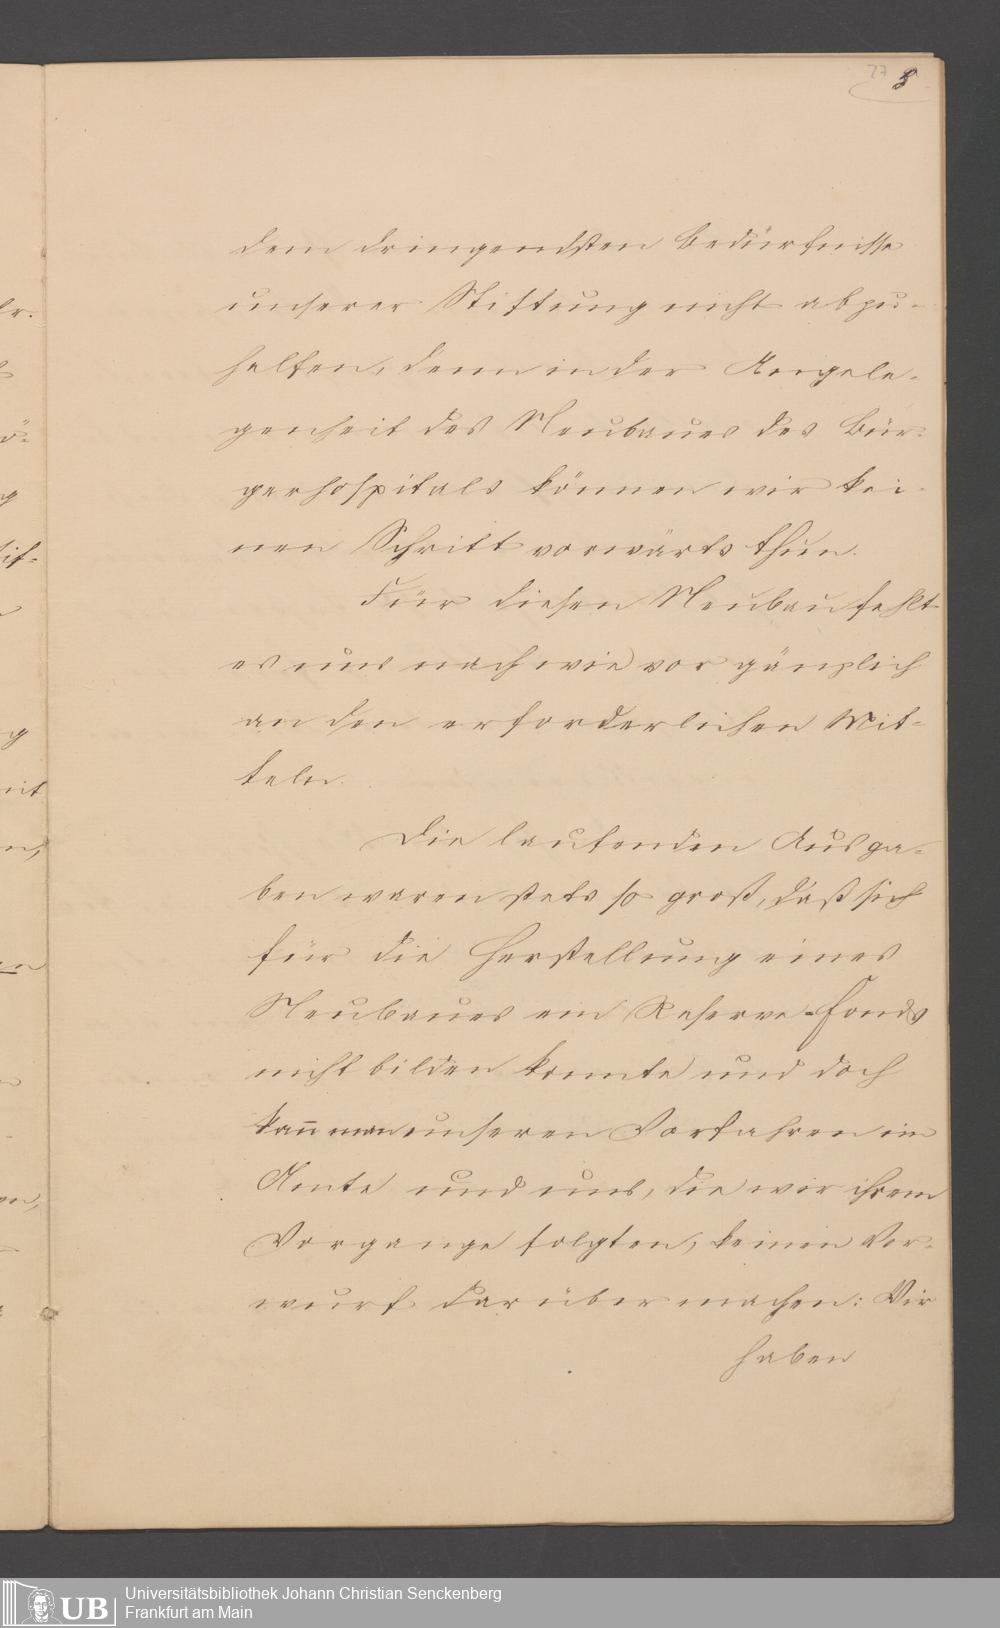 27 8
dem dringendsten Bedürfnisse
unserer Stiftung nicht abzu-
helfen, denn in der Angele-
genheit des Neubaues des Bür-
gerhospitals können wir kei-
nen Schritt vorwärts thun.
Für diesen Neubau fehlt
es uns nach wie vor gänzlich
an den erforderlichen Mit-
teln.
Die laufenden Ausga-
ben waren stets so groß, daß sich
für die Herstellung eines
Neubaues ein Reserve-Fonds
nicht bilden konnte und doch
kan̄ man unseren Vorfahren im
Amte und uns, die wir ihrem
Vorgange folgten, keinen Vor-
wurf darüber machen: Wir
haben
UB
Universitätsbibliothek Johann Christian Senckenberg
Frankfurt am Main